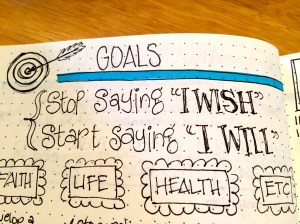 GOALS
Stop Saying "I WISH"
Start saying "I WILL"
FAITH LIFE HEALTH ETC